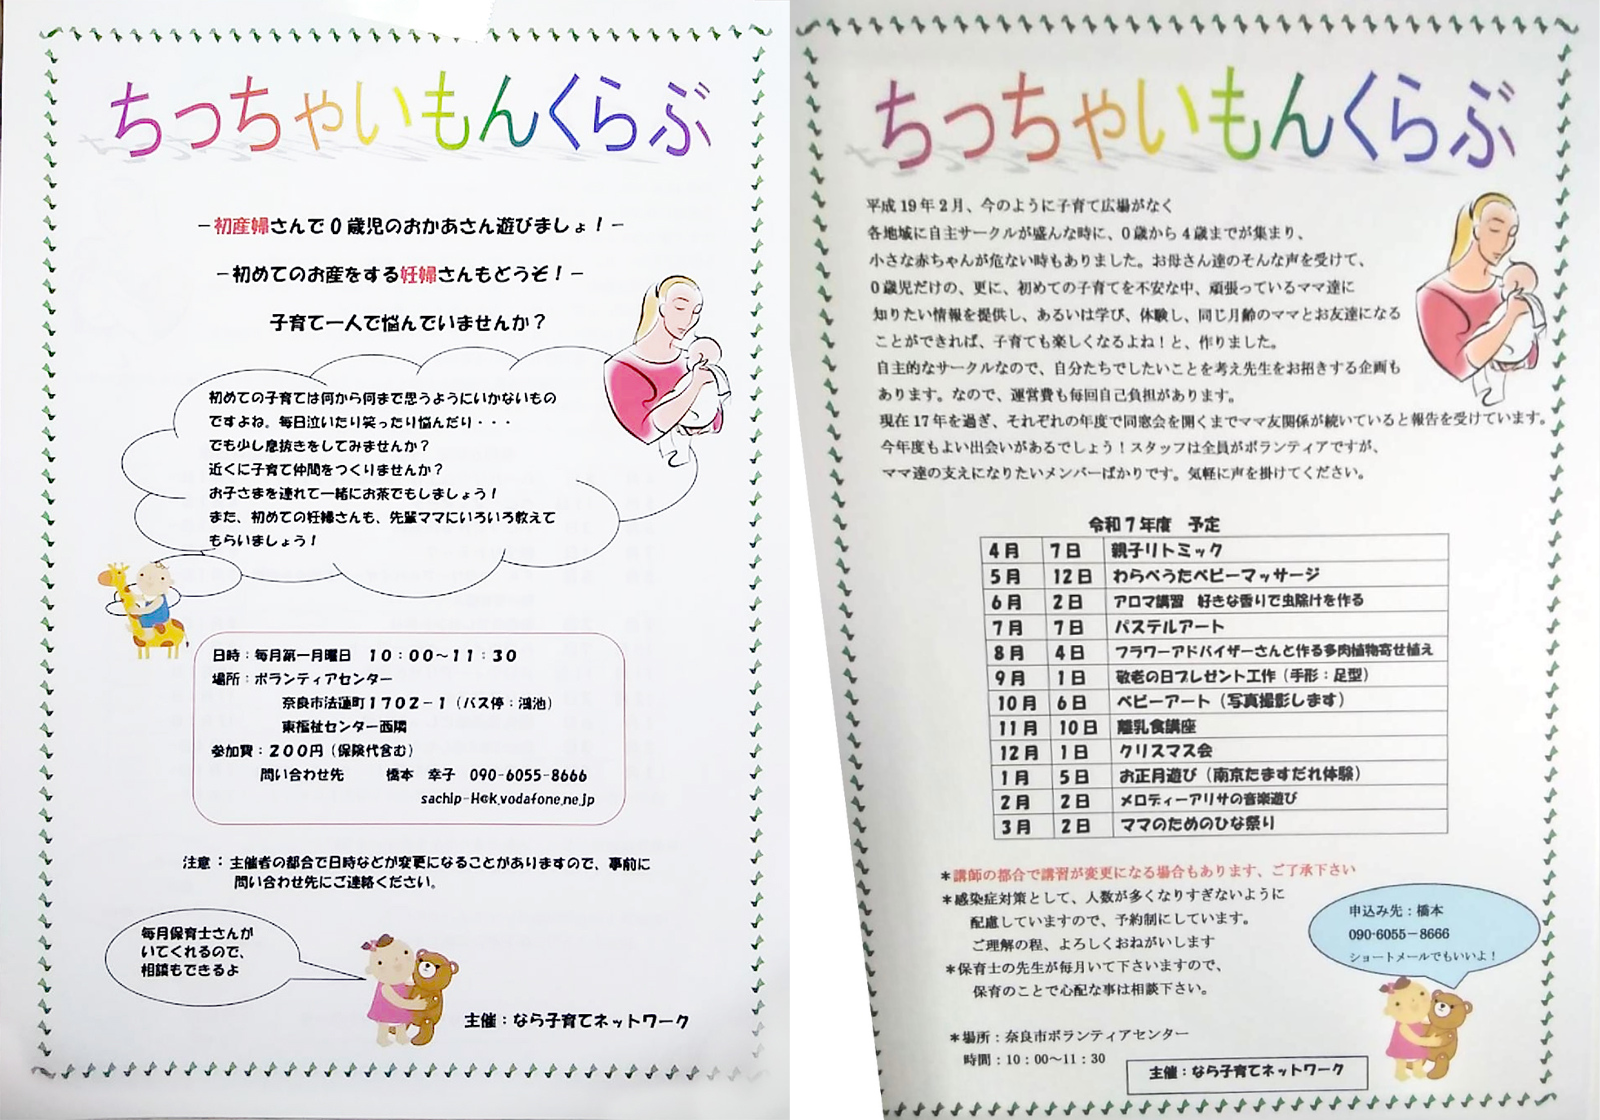 ちっちゃいもんくらぶ
－初産婦さんで０歳児のおかあさん遊びましょ！－
－初めてのお産をする妊婦さんもどうぞ！－
子育て一人で悩んでいませんか？
初めての子育ては何から何まで思うようにいかないもの
ですよね。毎日泣いたり笑ったり悩んだり・・・
でも少し息抜きをしてみませんか？
近くに子育て仲間をつくりませんか？
お子さまを連れて一緒にお茶でもしましょう！
また、初めての妊婦さんも、先輩ママにいろいろ教えて
もらいましょう！
日時：毎月第一月曜日　１０：００～１１：３０
場所：ボランティアセンター
奈良市法蓮町１７０２－１（バス停：鴻池）
東福祉センター西隣
参加費：２００円（保険代含む）
問い合わせ先　　橋本　幸子　090-6055-8666
sachip-H@k.vodafone.ne.jp
注意：主催者の都合で日時などが変更になることがありますので、事前に
問い合わせ先にご連絡ください。
毎月保育士さんが
いてくれるので、
相談もできるよ
主催：なら子育てネットワーク
ちっちゃいもんくらぶ
平成19年2月、今のように子育て広場がなく
各地域に自主サークルが盛んな時に、0歳から4歳までが集まり、
小さな赤ちゃんが危ない時もありました。お母さん達のそんな声を受けて、
0歳児だけの、更に、初めての子育てを不安な中、頑張っているママ達に
知りたい情報を提供し、あるいは学び、体験し、同じ月齢のママとお友達になる
ことができれば、子育ても楽しくなるよね！と、作りました。
自主的なサークルなので、自分たちでしたいことを考え先生をお招きする企画も
あります。なので、運営費も毎回自己負担があります。
現在17年を過ぎ、それぞれの年度で同窓会を開くまでママ友関係が続いていると報告を受けています。
今年度もよい出会いがあるでしょう！スタッフは全員がボランティアですが、
ママ達の支えになりたいメンバーばかりです。気軽に声を掛けてください。
令和７年度　予定
4月　7日　親子リトミック
5月　12日　わらべうたベビーマッサージ
6月　2日　アロマ講習　好きな香りで虫除けを作る
7月　7日　パステルアート
8月　4日　フラワーアドバイザーさんと作る多肉植物寄せ植え
9月　1日　敬老の日プレゼント工作（手形：足型）
10月　6日　ベビーアート（写真撮影します）
11月　10日　離乳食講座
12月　1日　クリスマス会
1月　5日　お正月遊び（南京たますだれ体験）
2月　2日　メロディーアリサの音楽遊び
3月　2日　ママのためのひな祭り
＊講師の都合で講習が変更になる場合もあります、ご了承下さい
＊感染症対策として、人数が多くなりすぎないように
配慮していますので、予約制にしています。
ご理解の程、よろしくおねがいします
＊保育士の先生が毎月いて下さいますので、
保育のことで心配な事は相談下さい。
申込み先：橋本
090-6055－8666
ショートメールでもいいよ！
＊場所：奈良市ボランティアセンター
時間：10：00～11：30
主催：なら子育てネットワーク